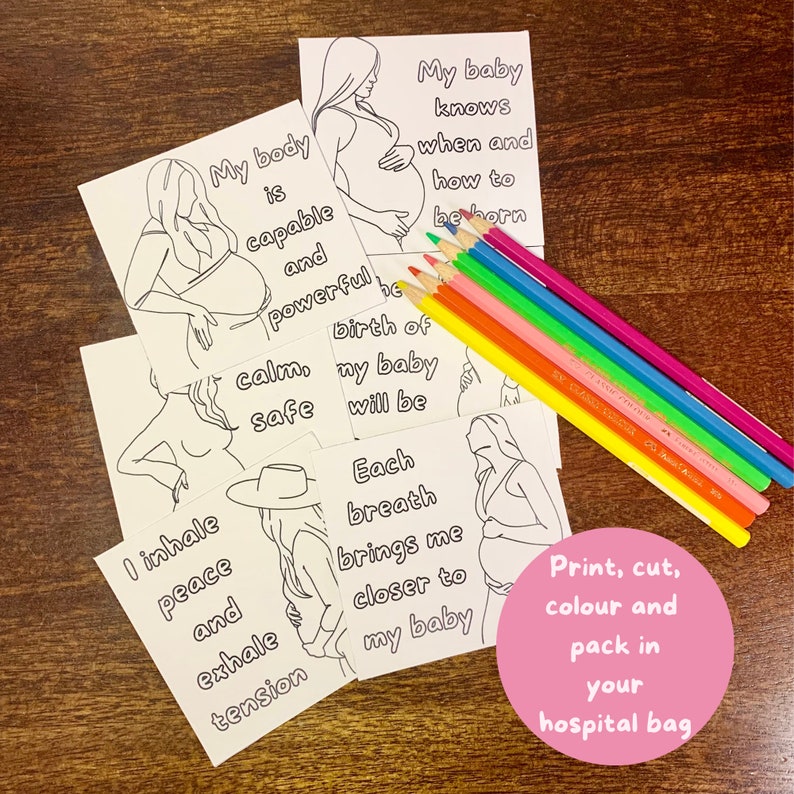 My baby
knows
when and
how to
be born
My body
is
capable
and
powerful
birth of
my baby
will be
calm,
safe
I inhale
peace
and
exhale
tension
Each
breath
brings me
closer to
my baby
CLASSIC COLOUR
Print, cut,
colour and
pack in
your
hospital bag